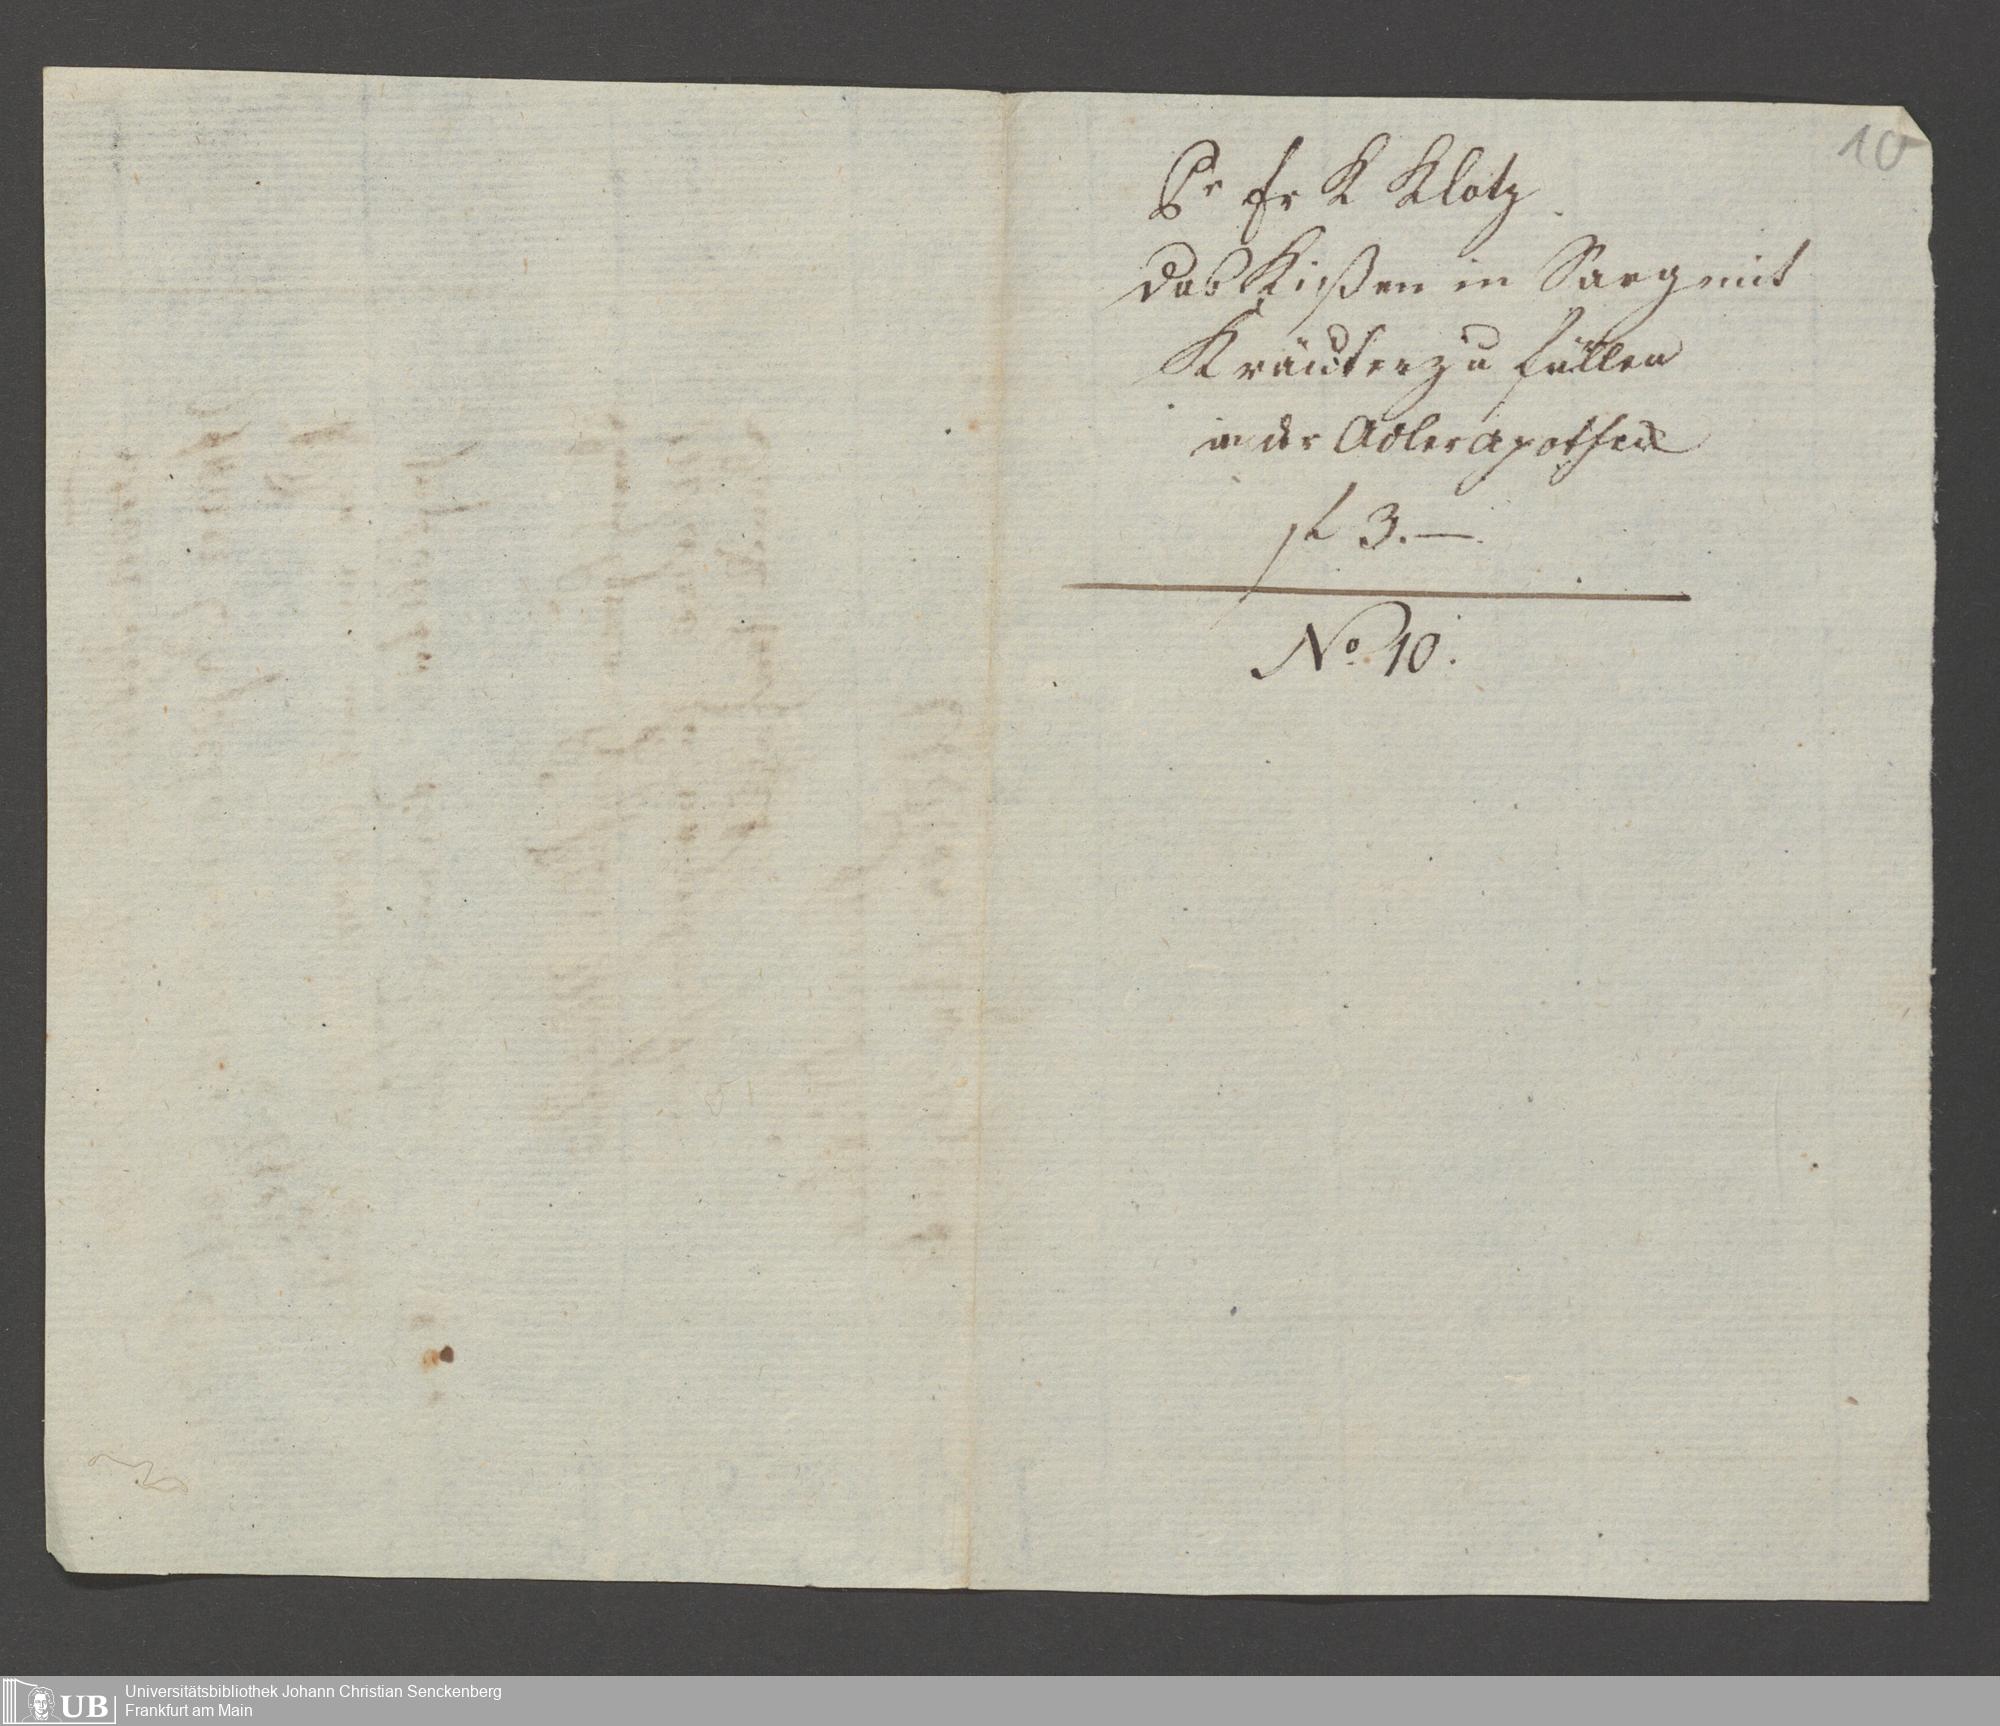 10
Pr Fr K Klotz
das Kißen in Sarg mit
Kräuter zu füllen
in der Adler apotheck
f 3.—.
No. 10.
UB
Universitätsbibliothek Johann Christian Senckenberg
Frankfurt am Main